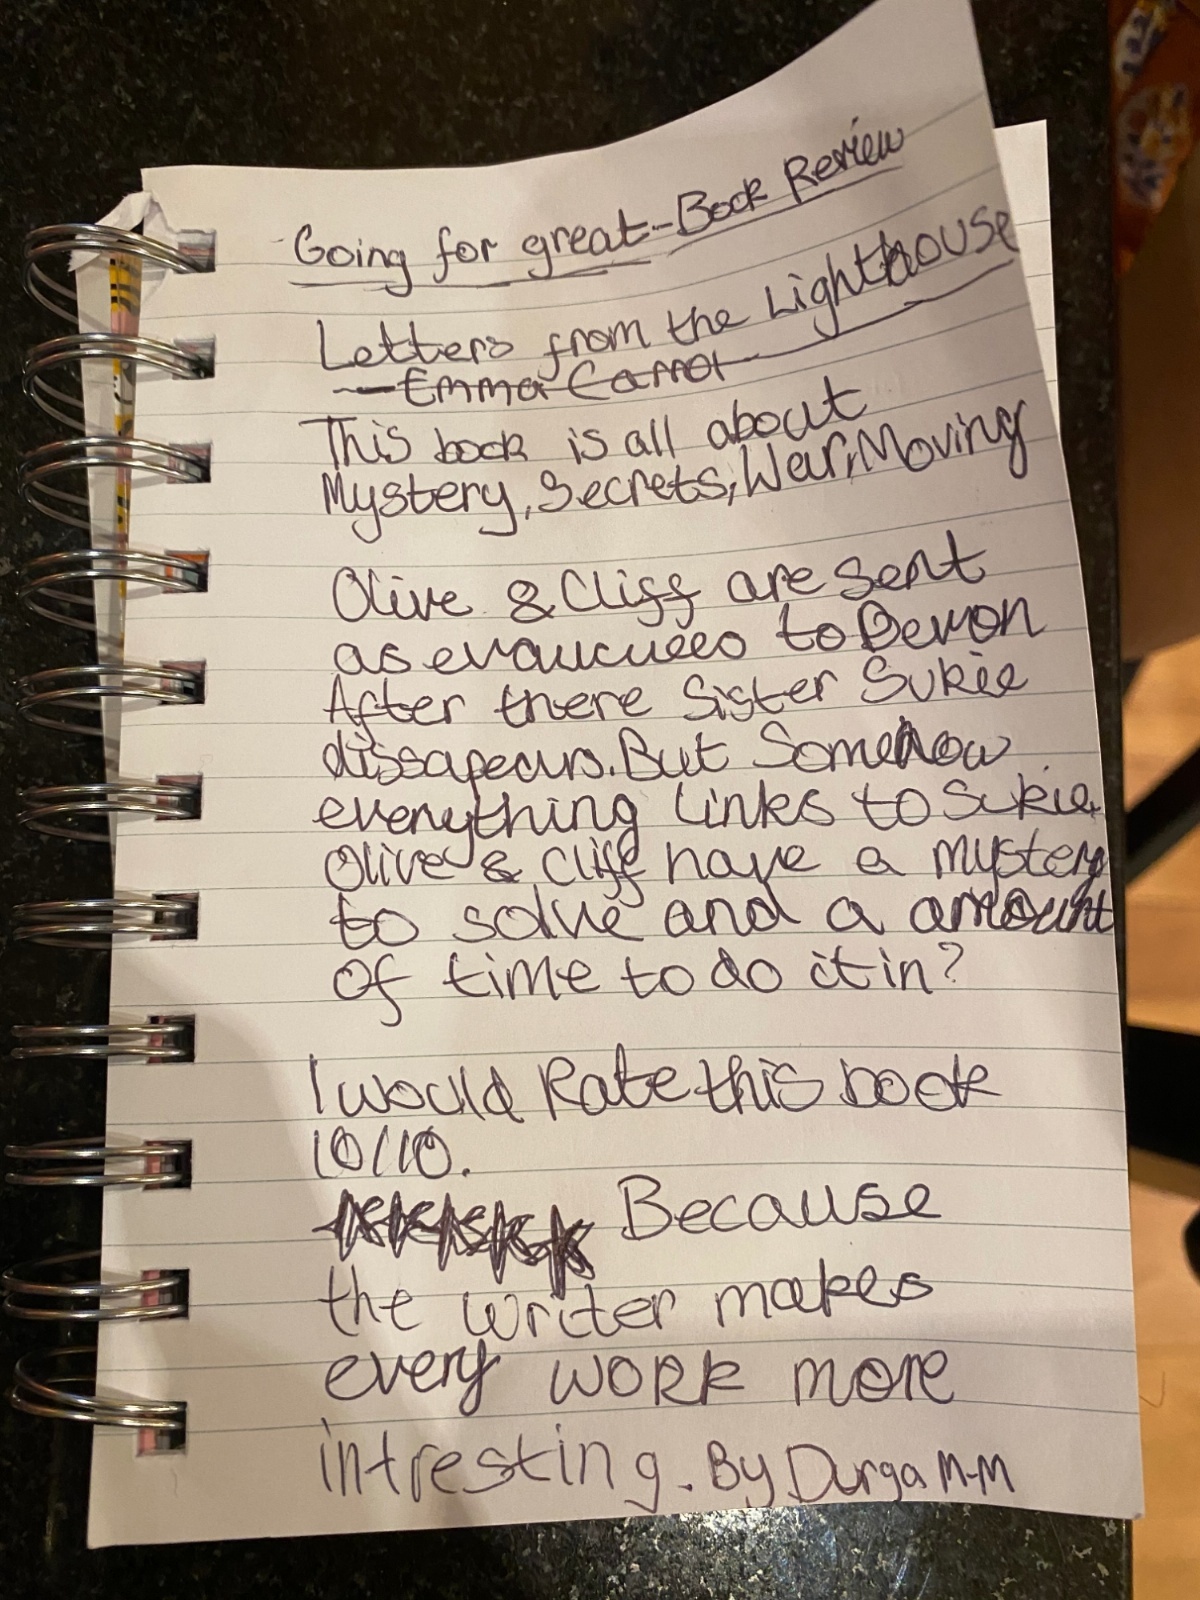 Going for great-Book Review
Letters from the Lighthouse
- Emma Carrol
This book is all about
Mystery, Secrets, War, Moving
Olive & Cliff are sent
as evaucuees to Devon
After there Sister Sukie
dissapears. But Somehow
everything links to Sukie.
Olive & Cliff have a mystery
to solve and a amount
of time to do it in?
I would Rate this book
10/10.
Because
the writer makes
every work more
intresting. By Durga M-M